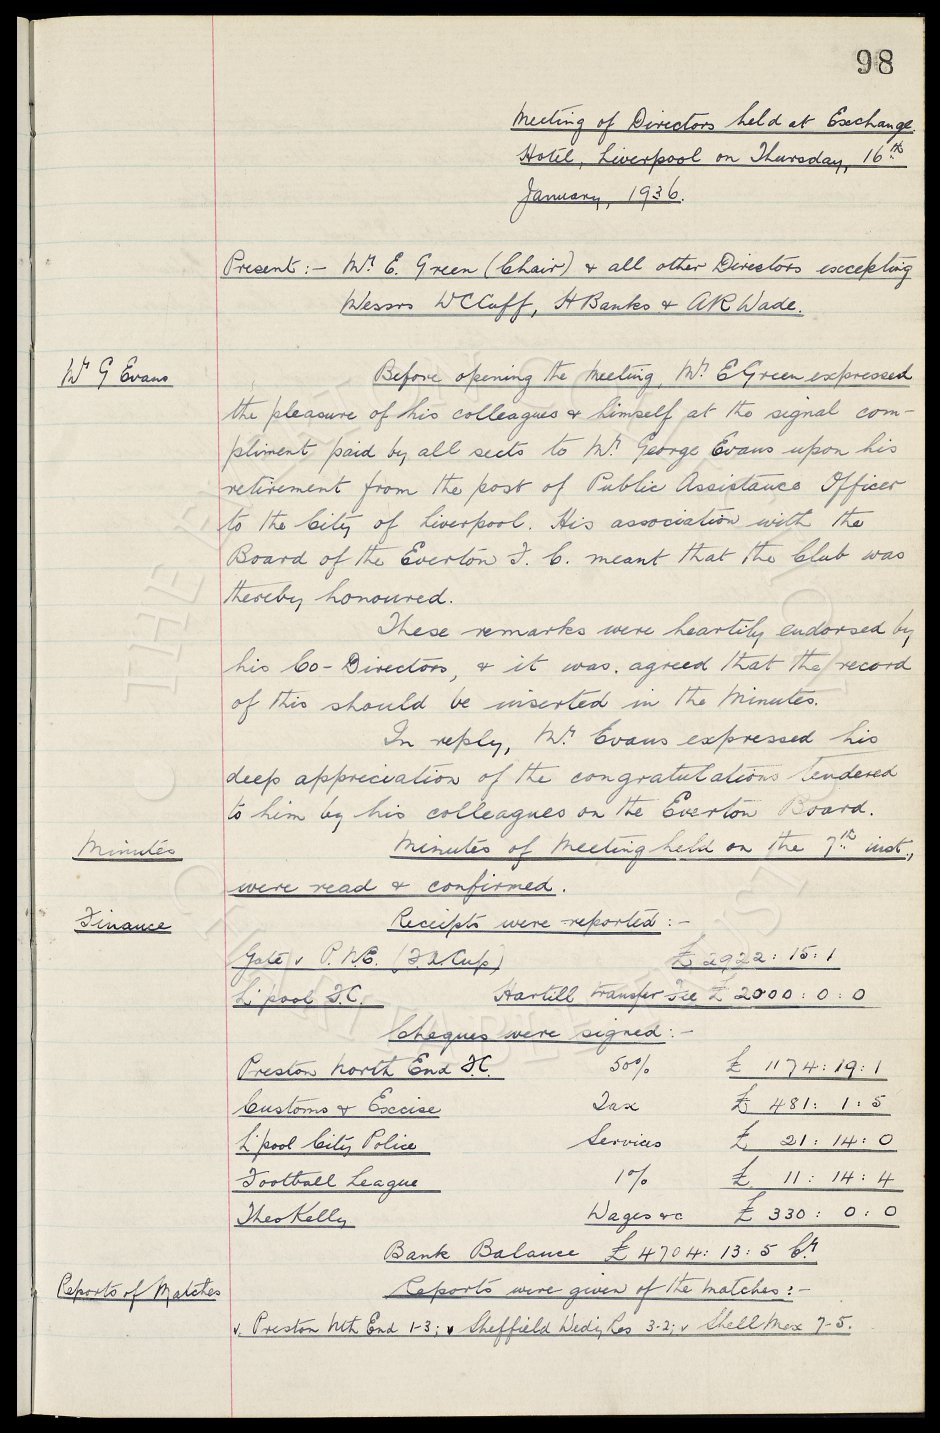 98
Meeting of Directors held at Exchange
Hotel, Liverpool on Thursday, 16th
January, 1936.
Present:- Mr. E. Green (Chair) & all other Directors excepting
Messrs W C Cuff, H Banks & A R Wade.
Mr G Evans
Before opening the Meeting, Mr. E Green expressed
the pleasure of his colleagues & himself at the signal com-
pliment paid by all sects to Mr. George Evans upon his
retirement from the post of Public Assistance Officer
to the City of Liverpool. His association with the
Board of the Everton F. C. meant that the Club was
thereby honoured.
These remarks were heartily endorsed by
his Co-Directors, & it was agreed that the record
of this should be inserted in the Minutes.
In reply, Mr. Evans expressed his
deep appreciation of the congratulations tendered
to him by his colleagues on the Everton Board.
Minutes
Minutes of Meeting held on the 7th inst.,
were read & confirmed.
Finance
Receipts were reported:-
Gate v P.N.E. (F.A.Cup) £ 2922: 15: 1
L'pool F.C. Hartill transfer Fee £ 2000: 0: 0
Cheques were signed:-
Preston North End F.C. 50% £ 1174: 19: 1
Customs & Excise Tax £ 481: 1: 5
L'pool City Police Services £ 21: 14: 0
Football League 1% £ 11: 14: 4
Theo Kelly Wages &c £ 330: 0: 0
Bank Balance £ 4704: 13: 5 Cr.
Reports of Matches
Reports were given of the matches:-
v. Preston Nth End 1-3; v Sheffield Wedy Res 3-2; v Shell Mex 7-5.
© THE EVERTON COLLECTION CHARITABLE TRUST